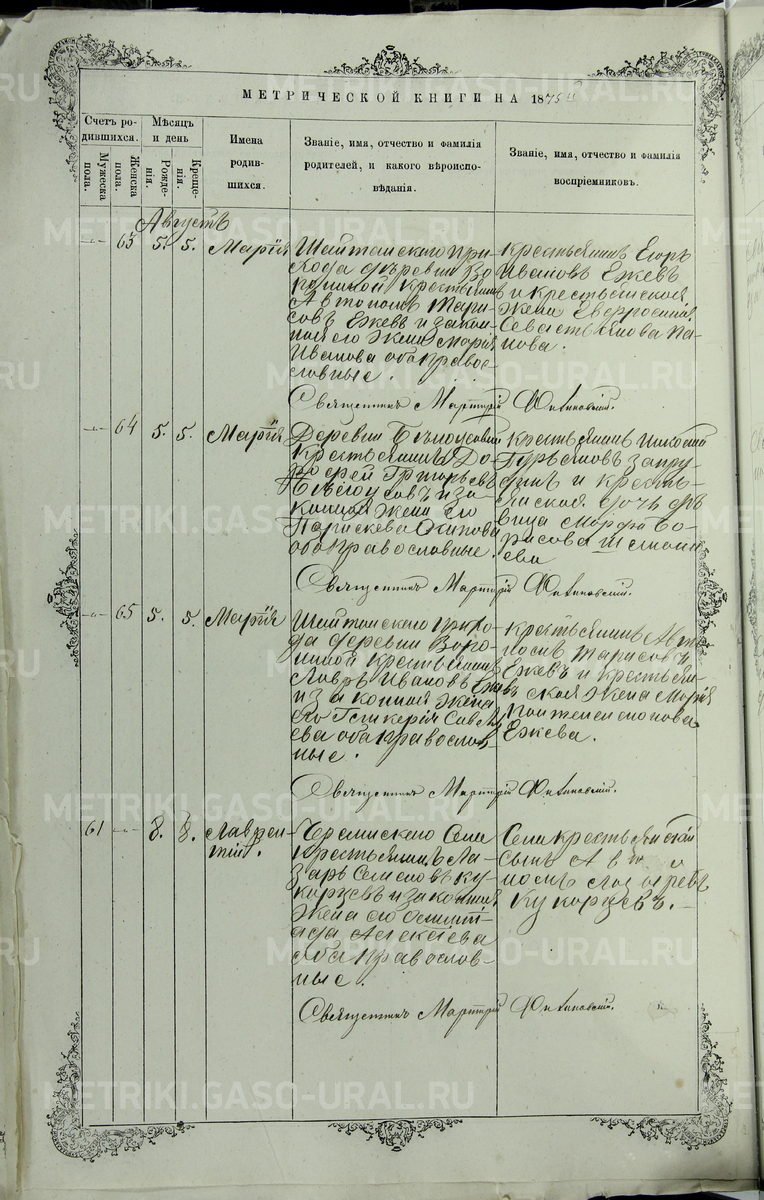 МЕТРИЧЕСКОЙ КНИГИ НА 1875 й
Счетъ ро-
дившихся.
Мужеска
пола.
Женска
пола.
Мѣсяцъ
и день
Рожде-
нія.
Креще-
нія.
Имена
родив-
шихся.
Званіе, имя, отчество и фамилія
родителей, и какого вѣроиспо-
вѣданія.
Званіе, имя, отчество и фамилія
воспріемниковъ.
Августъ
63 5. 5. Марія
Шайтанскаго при-
хода деревни Во-
рониной крестьянинъ
Автономъ Тари-
совъ Ежевъ и закон-
ная его жена Марія
Иванова оба право-
славные.
Крестьянинъ Егоръ
Ивановъ Ежевъ
и крестьянская
жена Евфросинія
Севастьянова Па-
нова.
Священникъ Мартирій
64 5. 5. Марія
Деревни
крестьянинъ До-
рофей Григорьевъ
Бѣлоусовъ и за-
конная жена его
Параскева Осипова
оба православные.
Крестьянинъ Николай
Гурьяновъ
и кресть-
янская дочь дѣ-
вица Марфа Бо-
рисова
Священникъ Мартирій
65 5. 5. Марія
Шайтанскаго прихо-
да деревни Воро-
ниной крестьянинъ
Лавръ Ивановъ Ежевъ
и законная жена
его Гликерія Савель-
ева оба православ-
ные.
Крестьянинъ Авто-
номъ Тарисовъ
Ежевъ и крестьян-
ская жена Марія
Пантелеимонова
Ежева.
Священникъ Мартирій
61 8. 8. Лаврен-
тій.
Черемисскаго Села
крестьянинъ Ла-
зарь Семеновъ Ку-
корцевъ и законная
жена его
Алексѣева
оба православ-
ные.
Села крестьянскій
сынъ Авто-
номъ Лазаревъ
Кукорцевъ.
Священникъ Мартирій
METRIKI.GASO-URAL.RU